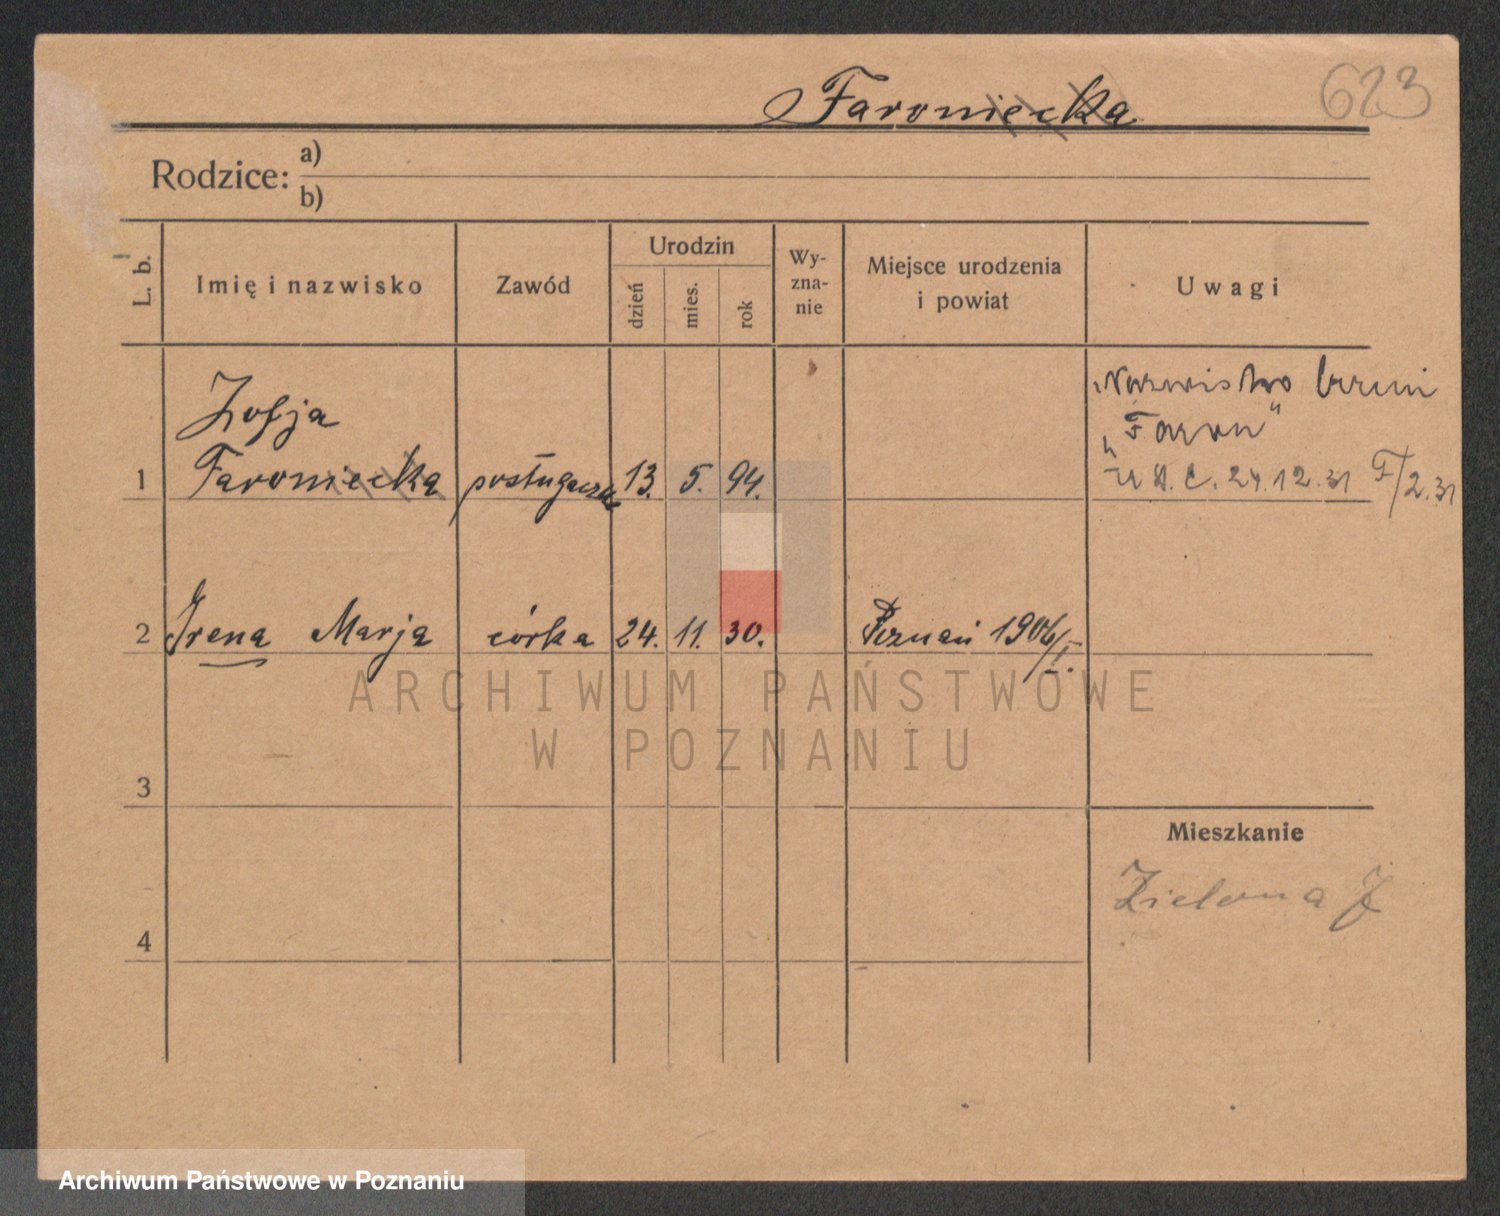 623
Faroniecka
Rodzice: a)
b)
L. b.
Imię i nazwisko
Zawód
Urodzin
dzień
mies.
rok
Wy-
zna-
nie
Miejsce urodzenia
i powiat
Uwagi
Zofja
1 Faroniecka posługaczka 13. 5. 94.
Nazwisko brzmi
„Faron"
U.S.C. 24.12.31 F/2.31
2 Irena Marja córka 24. 11. 30. Poznań 1906/I.
3
4
Mieszkanie
Zielona 7
ARCHIWUM PAŃSTWOWE
W POZNANIU
Archiwum Państwowe w Poznaniu